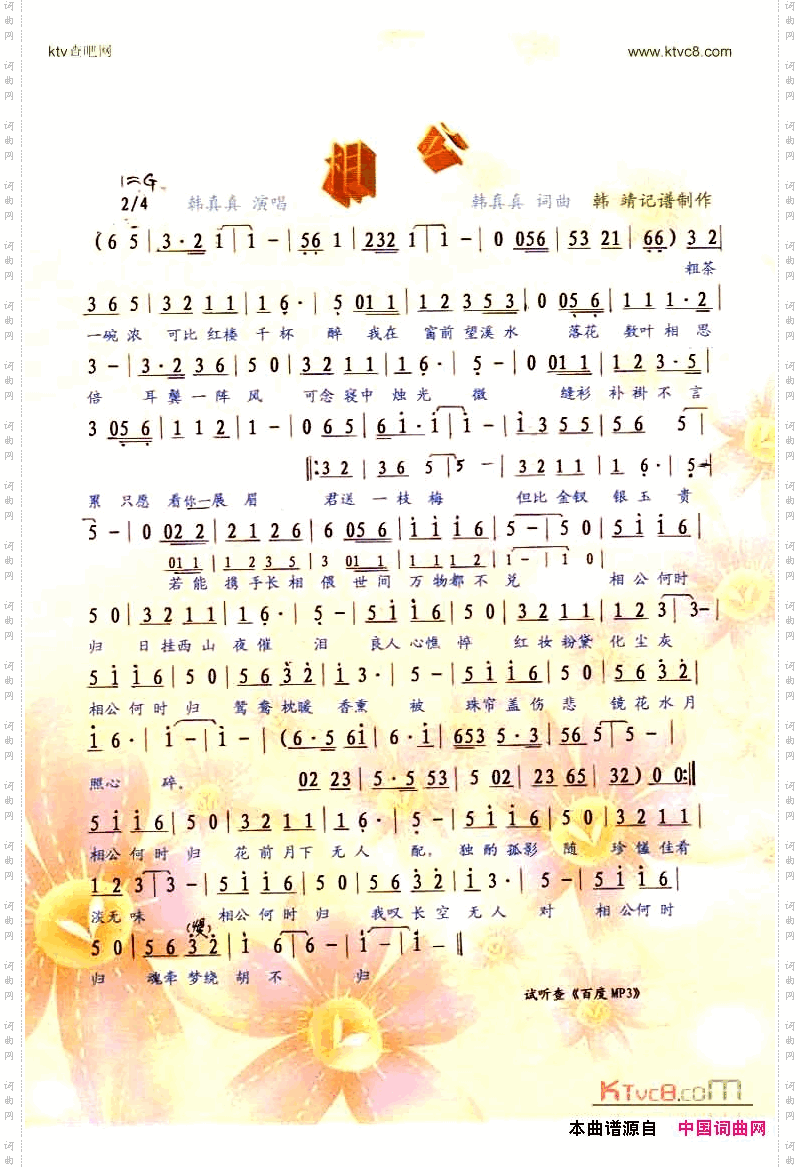 ktv查吧网 www.ktvc8.com
相公
1=G
2/4 韩真真 演唱 韩真真 词曲 韩 靖记谱制作
(6 5 | 3·2 1 | 1 - | 56 1 | 232 1 | 1 - | 0 056 | 53 21 | 66) 32
粗茶
3 6 5 | 3 2 1 1 | 1 6· | 5 0 1 1 | 1 2 3 5 3 | 0 05 6 | 1 1 1·2
一碗浓 可比红楼 千杯 醉 我在 窗前望溪水 落花 数叶相思
3 - | 3·2 3 6 | 5 0 | 3 2 1 1 | 1 6· | 5 - | 0 0 1 1 | 1 2 3·5
倍 耳鬓一阵风 可念寝中 烛光 微 缝衫 补褂不言
3 05 6 | 1 1 2 | 1 - | 0 6 5 | 6 1·1 | 1 - | 1 3 5 5 | 5 6 5
‖: 3 2 | 3 6 5 | 5 - | 3 2 1 1 | 1 6· | 5 -
累 只愿 看你一展 眉 君送 一枝梅 但比金钗 银玉 贵
5 - | 0 02 2 | 2 1 2 6 | 6 05 6 | 1 1 1 6 | 5 - | 5 0 | 5 1 1 6
01 1 | 1 2 3 5 | 3 01 1 | 1 1 1 2 | 1 - | 1 0
若能 携手长相 偎 世间 万物都不兑 相公何时
5 0 | 3 2 1 1 | 1 6· | 5 - | 5 1 1 6 | 5 0 | 3 2 1 1 | 1 2 3 | 3 -
归 日挂西山 夜催 泪 良人心憔 悴 红妆粉黛 化尘灰
5 1 1 6 | 5 0 | 5 6 3 2 | 1 3· | 5 - | 5 1 1 6 | 5 0 | 5 6 3 2
相公何时归 鸳鸯枕暖 香熏 被 珠帘盖伤悲 镜花水月
1 6· | 1 - | 1 - | (6·5 61 | 6·1 | 653 5·3 | 56 5 | 5 - |
照心 碎。 02 23 | 5·5 53 | 5 02 | 23 65 | 32) 0 0 :‖
5 1 1 6 | 5 0 | 3 2 1 1 | 1 6· | 5 - | 5 1 1 6 | 5 0 | 3 2 1 1
相公何时归 花前月下 无人 配, 独酌孤影 随 珍馐佳肴
1 2 3 | 3 - | 5 1 1 6 | 5 0 | 5 6 3 2 | 1 3· | 5 - | 5 1 1 6
淡无味 相公何时归 我叹长空 无人 对 相公何时
(慢)
5 0 | 5 6 3 2 | 1 6 | 6 - | 1 - | 1 - ‖
归 魂牵梦绕 胡不 归
试听查《百度MP3》
KTvc8.com
本曲谱源自 中国词曲网
词曲网